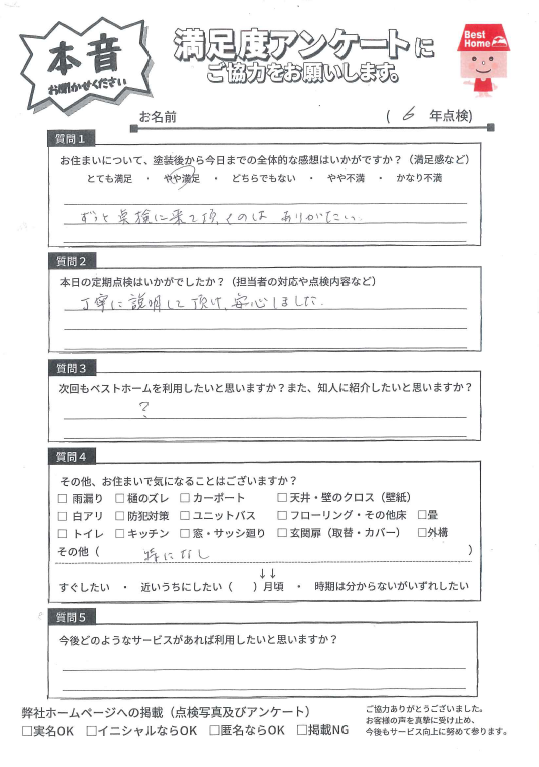 本音
お聞かせください
満足度アンケートに
ご協力をお願いします。
Best Home
お名前 ( 6 年点検)
質問1
お住まいについて、塗装後から今日までの全体的な感想はいかがですか？（満足感など）
とても満足 ・ やや満足 ・ どちらでもない ・ やや不満 ・ かなり不満
ずっと点検に来て頂くのは ありがたい。
質問2
本日の定期点検はいかがでしたか？（担当者の対応や点検内容など）
丁寧に説明して頂け、安心しました。
質問3
次回もベストホームを利用したいと思いますか？また、知人に紹介したいと思いますか？
？
質問4
その他、お住まいで気になることはございますか？
□ 雨漏り □ 樋のズレ □ カーポート □ 天井・壁のクロス（壁紙）
□ 白アリ □ 防犯対策 □ ユニットバス □ フローリング・その他床 □畳
□ トイレ □ キッチン □ 窓・サッシ廻り □ 玄関扉（取替・カバー） □外構
その他（ 特になし ）
↓↓
すぐしたい ・ 近いうちにしたい（ ）月頃 ・ 時期は分からないがいずれしたい
質問5
今後どのようなサービスがあれば利用したいと思いますか？
弊社ホームページへの掲載（点検写真及びアンケート）
□実名OK □イニシャルならOK □匿名ならOK □掲載NG
ご協力ありがとうございました。
お客様の声を真摯に受け止め、
今後もサービス向上に努めて参ります。